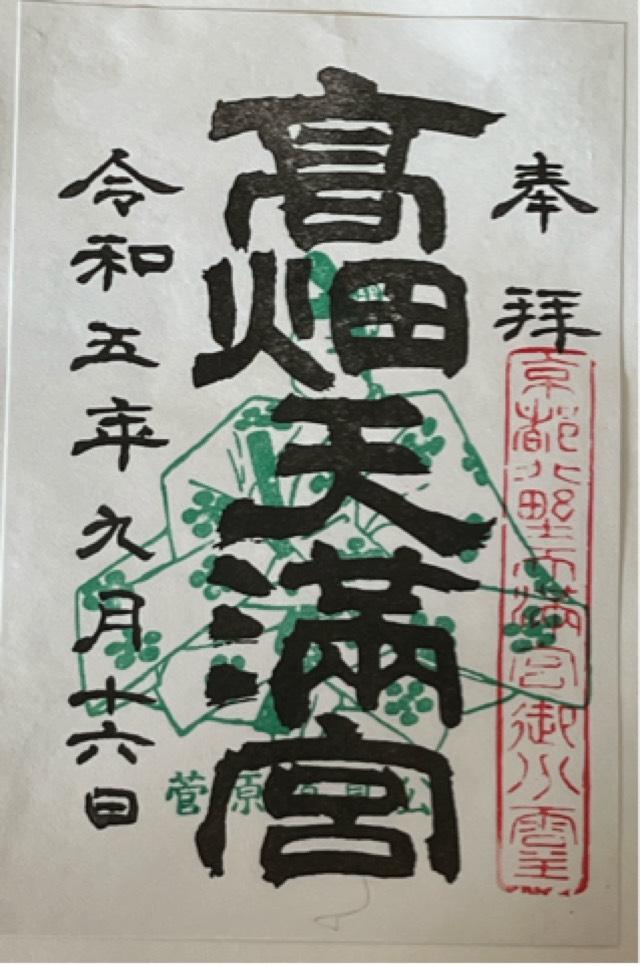 奉拝
京都北野天満宮御分霊
髙畑天満宮
菅原道真公
令和五年九月十六日